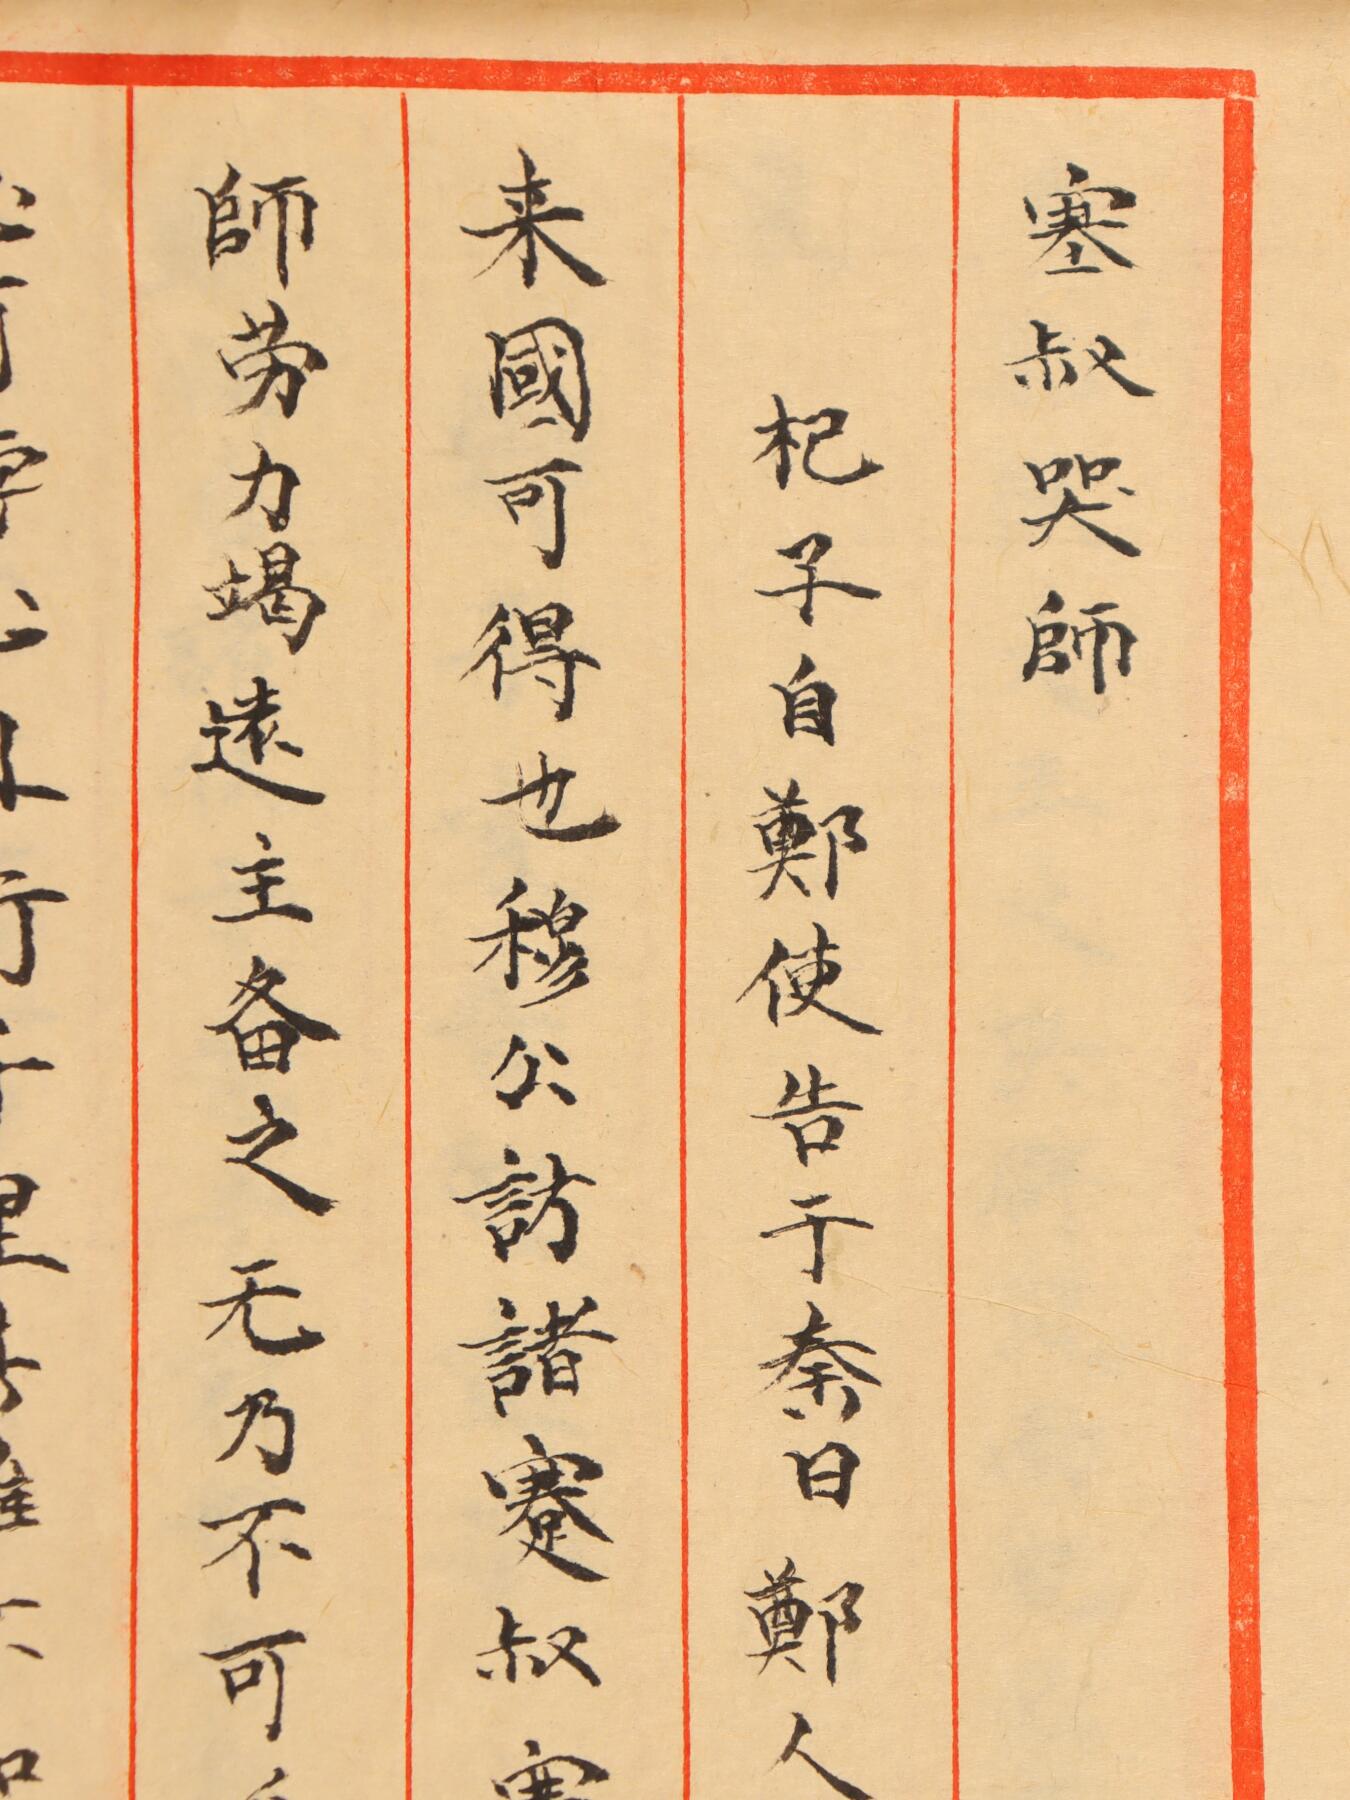 塞叔哭師
杞子自鄭使告于秦曰鄭人
来國可得也穆公訪諸蹇叔
師劳力竭遠主备之无乃不可